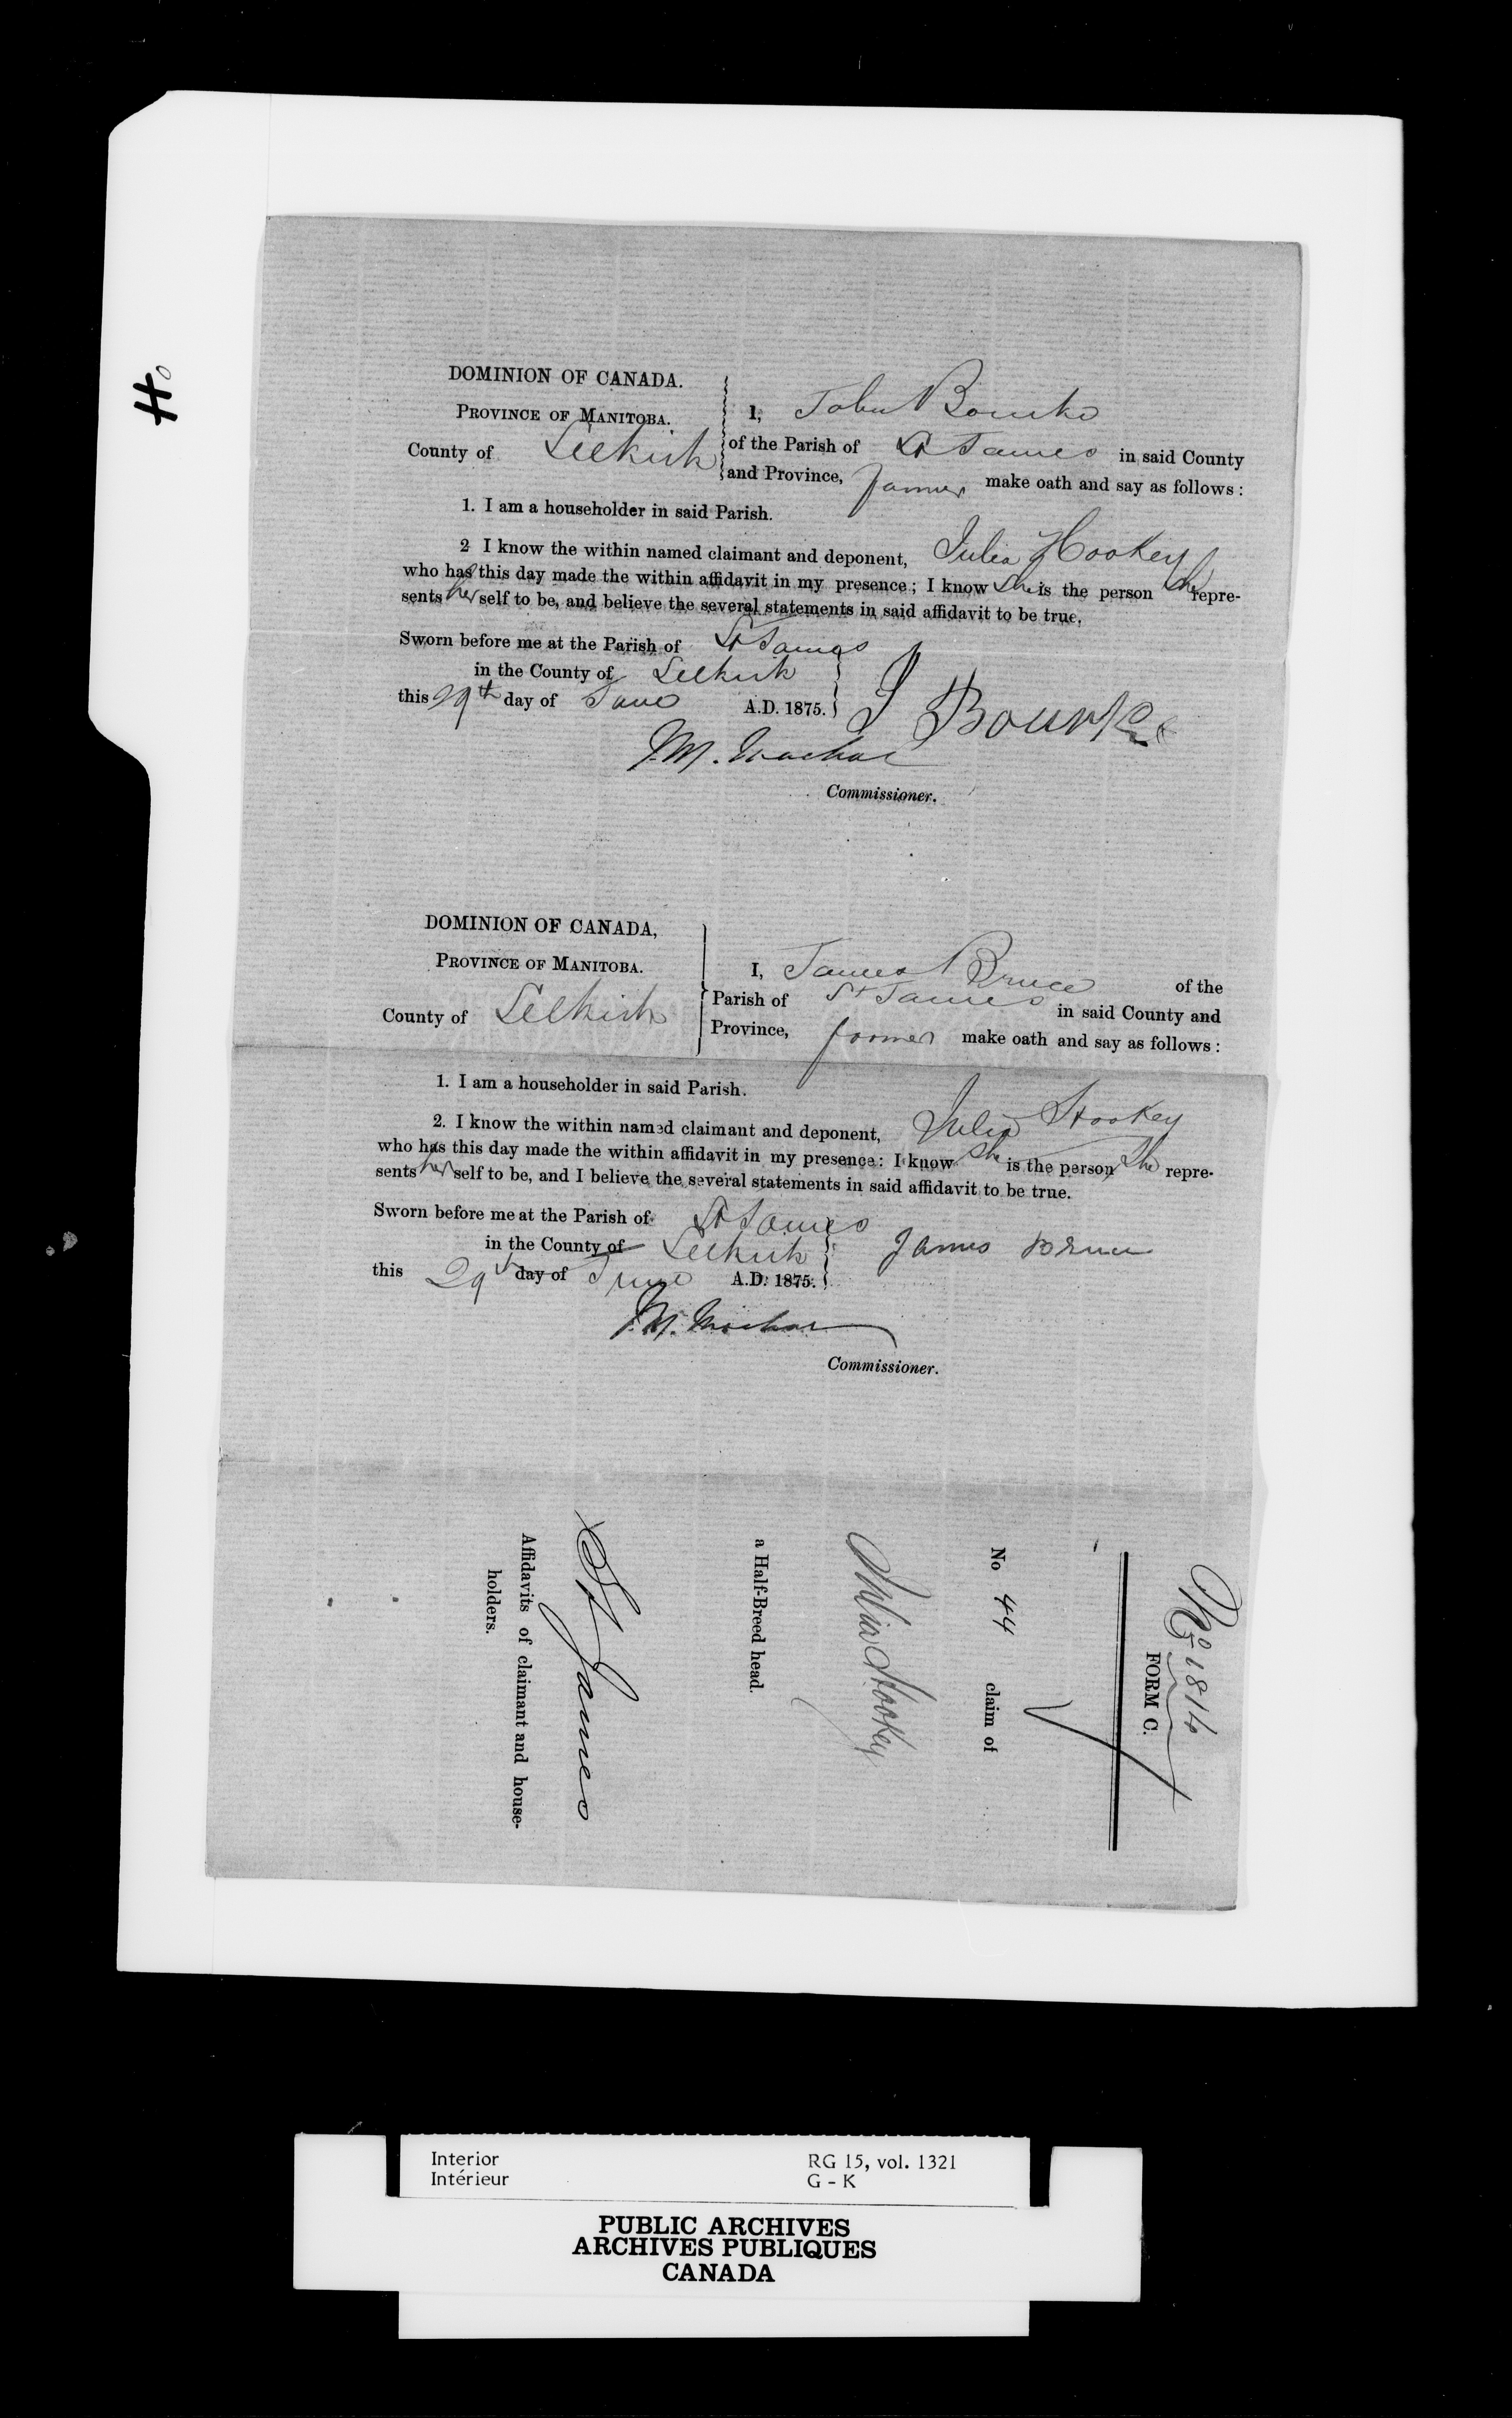 Ho
DOMINION OF CANADA.
PROVINCE OF MANITOBA.
County of Selkirk
I, John Bourke
of the Parish of St James in said County
and Province, farmer make oath and say as follows:
1. I am a householder in said Parish.
2 I know the within named claimant and deponent, Julia Hookey
who has this day made the within affidavit in my presence; I know she is the person she repre-
sents herself to be, and believe the several statements in said affidavit to be true.
Sworn before me at the Parish of St James
in the County of Selkirk
this 29th day of June A.D. 1875.
J Bourke
J.M. Machar
Commissioner.
DOMINION OF CANADA,
PROVINCE OF MANITOBA.
County of Selkirk
I, James Bruce of the
Parish of St James in said County and
Province, farmer make oath and say as follows:
1. I am a householder in said Parish.
2. I know the within named claimant and deponent, Julia Hookey
who has this day made the within affidavit in my presence: I know she is the person she repre-
sents herself to be, and I believe the several statements in said affidavit to be true.
Sworn before me at the Parish of St James
in the County of Selkirk
this 29th day of June A.D. 1875.
James Bruce
J.M. Machar
Commissioner.
No 1814
FORM C.
No 44 claim of
Julia Hookey
a Half-Breed head.
St James
Affidavits of claimant and house-
holders.
Interior
Intérieur
RG 15, vol. 1321
G - K
PUBLIC ARCHIVES
ARCHIVES PUBLIQUES
CANADA